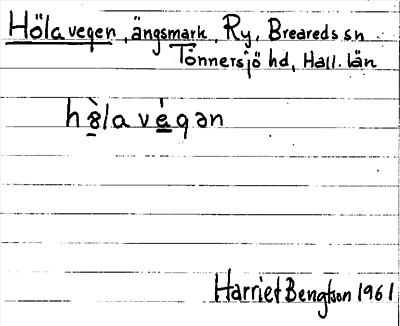 Hölavegen, ängsmark, Ry, Breareds sn
Tönnersjö hd, Hall. län
hò̱8lavé̱gən
Harriet Bengtson 1961